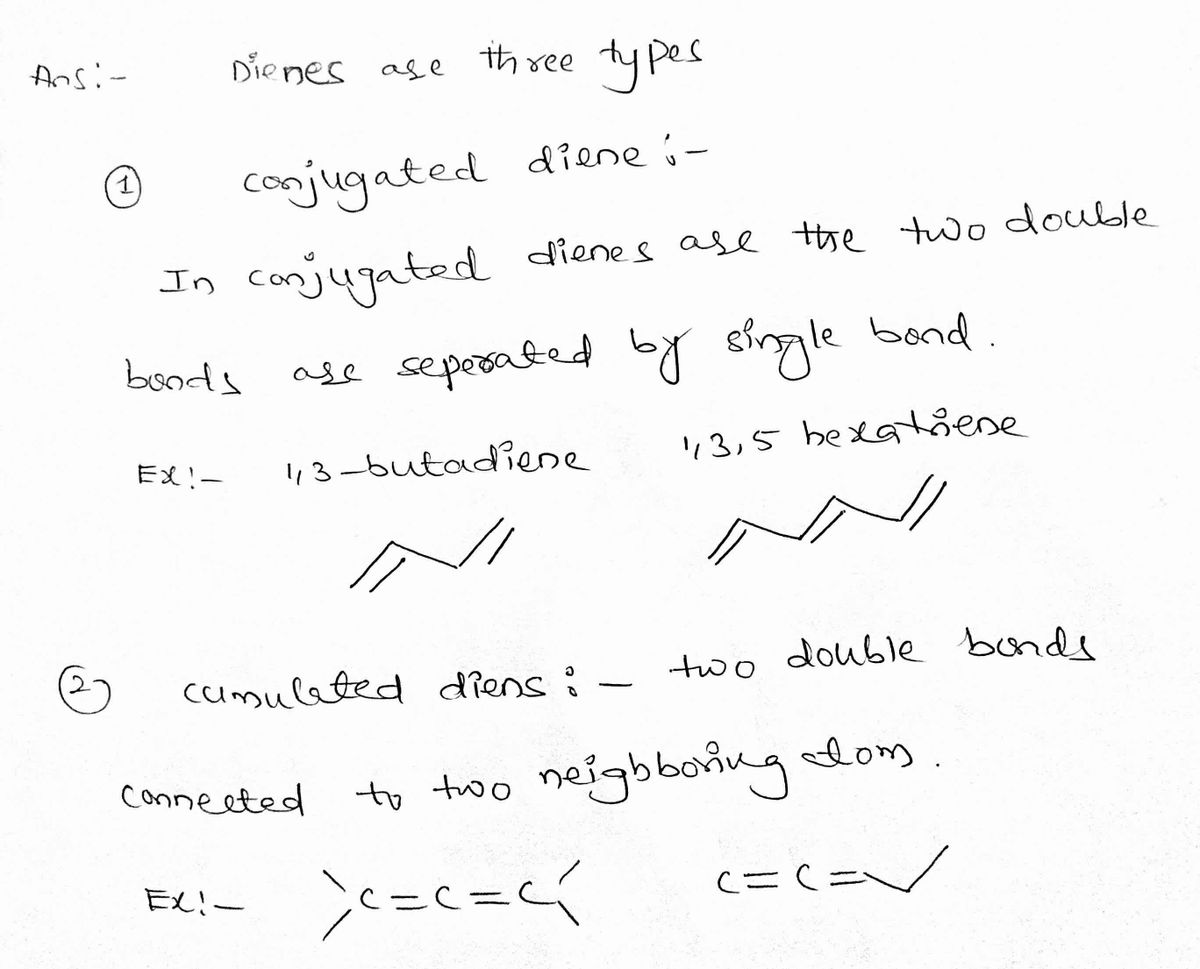 Ans:- Dienes are three types
① conjugated diene :-
In conjugated dienes are the two double
bonds are seperated by single bond.
Ex:- 1,3-butadiene 1,3,5 hexatriene
② cumulated diens :- two double bonds
connected to two neighboring atom.
Ex:- C=C=C C=C=